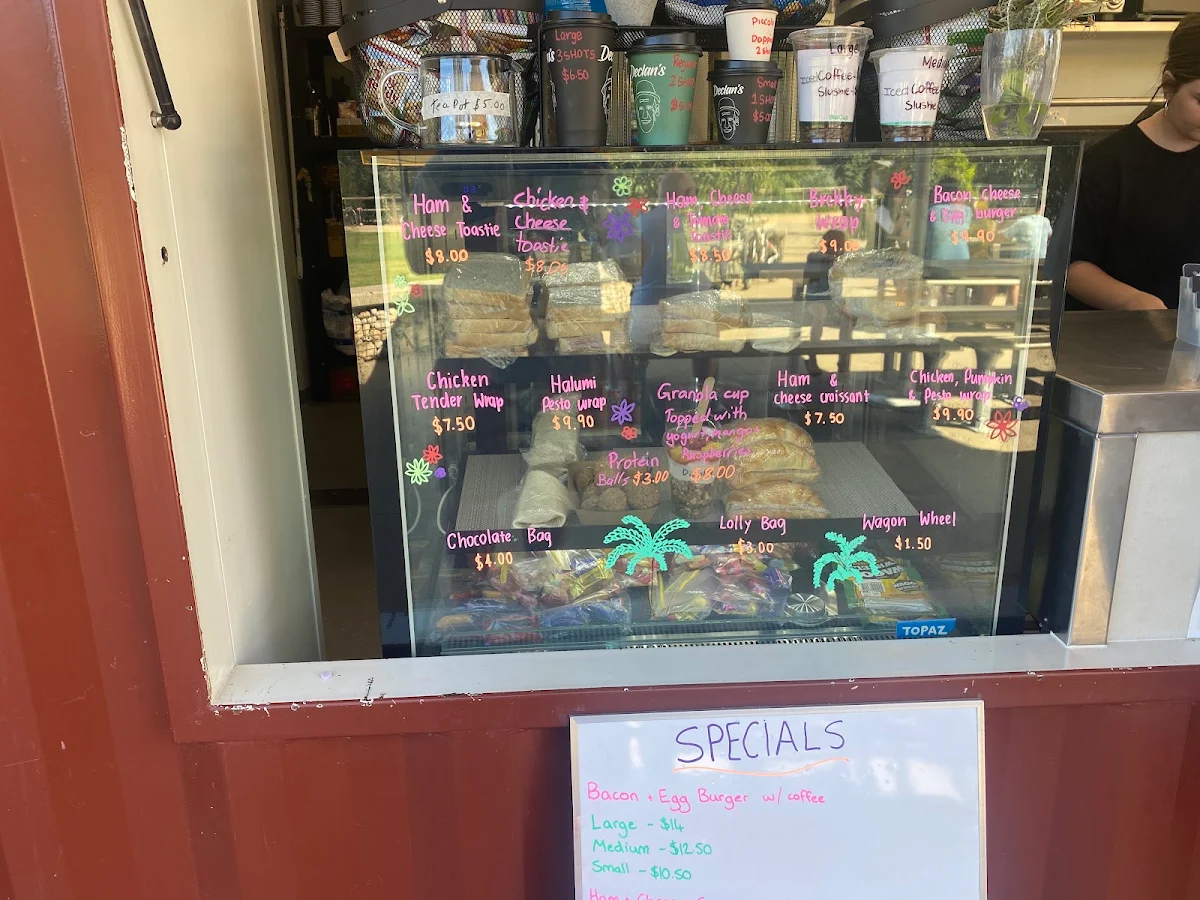 Large
3 SHOTS
$6.50
Declan's
Piccolo
Declan's
Large
Iced Coffee
Slushe
Medi
Iced Coffee
Slushe
Tea Pot $5.00
Ham &
Cheese Toastie
$8.00
Chicken &
Cheese
toastie
$8.00
Ham Cheese
& Tomato
Toastie
$8.50
Brekky
Wrap
$9.00
Bacon Cheese
& Egg burger
$9.90
Chicken
Tender Wrap
$7.50
Halumi
Pesto wrap
$9.90
Granola cup
Topped with
yogurt, mango
Raspberries
$8.00
Ham &
cheese croissant
$7.50
Chicken, Pumpkin
& Pesto wrap
$9.90
Protein
Balls $3.00
Chocolate Bag
$4.00
Lolly Bag
$3.00
Wagon Wheel
$1.50
TOPAZ
SPECIALS
Bacon + Egg Burger w/ coffee
Large - $14
Medium - $12.50
Small - $10.50